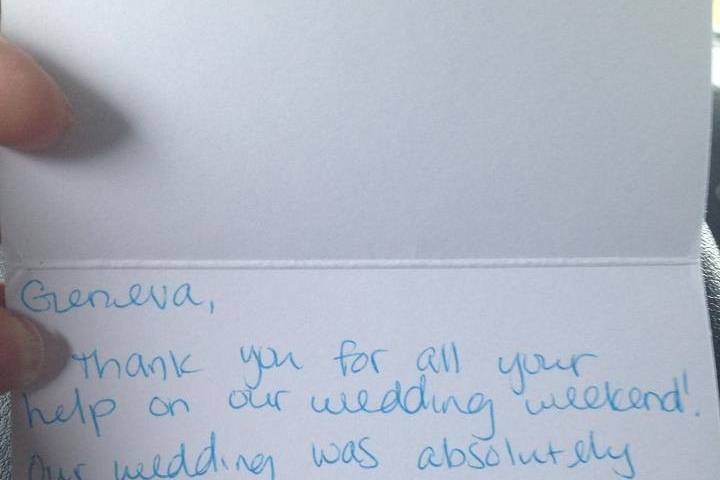 Geneva,
Thank you for all your
help on our wedding weekend!
Our wedding was absolutely